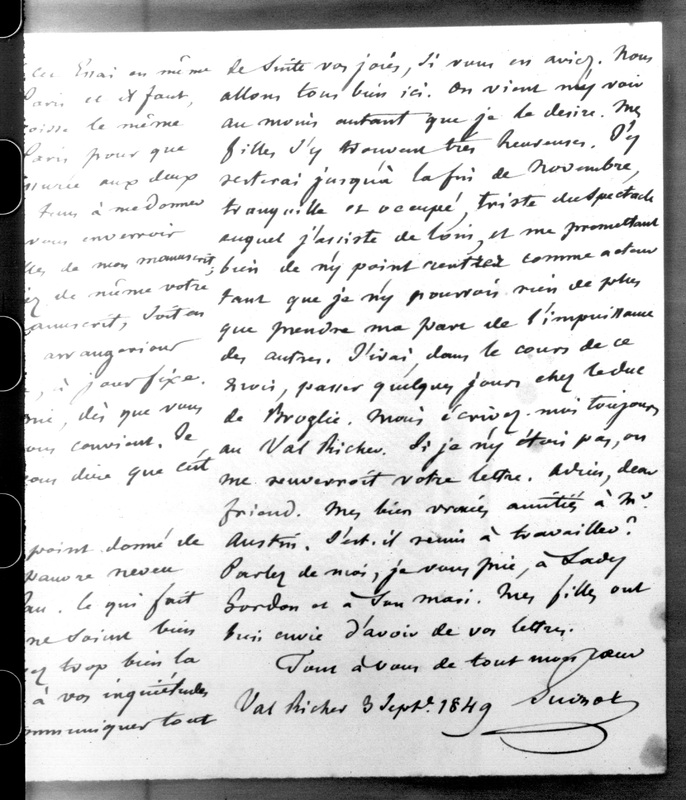 cet Essai en même
Paris et il faut,
le même
Paris pour que
aux deux
à me donner
vous enverrois
de mon manuscrit,
de même votre
manuscrit, soit en
arrangerions
, à jour fixe.
, dès que vous
vous convient. Je
vous dire que c'est
point donné de
pauvre neveu
. Ce qui fait
ne soient bien
trop bien la
à vos inquiétudes
communiquer tout
de suite vos joies, si vous en aviez. Nous
allons tous bien ici. On vient m'y voir
au moins autant que je le desire. Mes
filles s'y trouvent très heureuses. J'y
resterai jusqu'à la fin de novembre,
tranquille et occupé, triste du spectacle
auquel j'assiste de loin, et me promettant
bien de n'y point rentrer comme acteur
tant que je n'y pourrois rien de plus
que prendre ma part de l'impuissance
des autres. J'irai, dans le cours de ce
mois, passer quelques jours chez le duc
de Broglie. Mais écrivez-moi toujours
au Val Richer. Si je n'y étois pas, on
me renverroit votre lettre. Adieu, dear
friend. Mes bien vraies amitiés à Mr.
Austin. S'est-il remis à travailler?
Parlez de moi, je vous prie, à Lady
Gordon et à son mari. Mes filles ont
bien envie d'avoir de vos lettres.
Tout à vous de tout mon coeur
Val Richer 3 Septe. 1849 Guizot